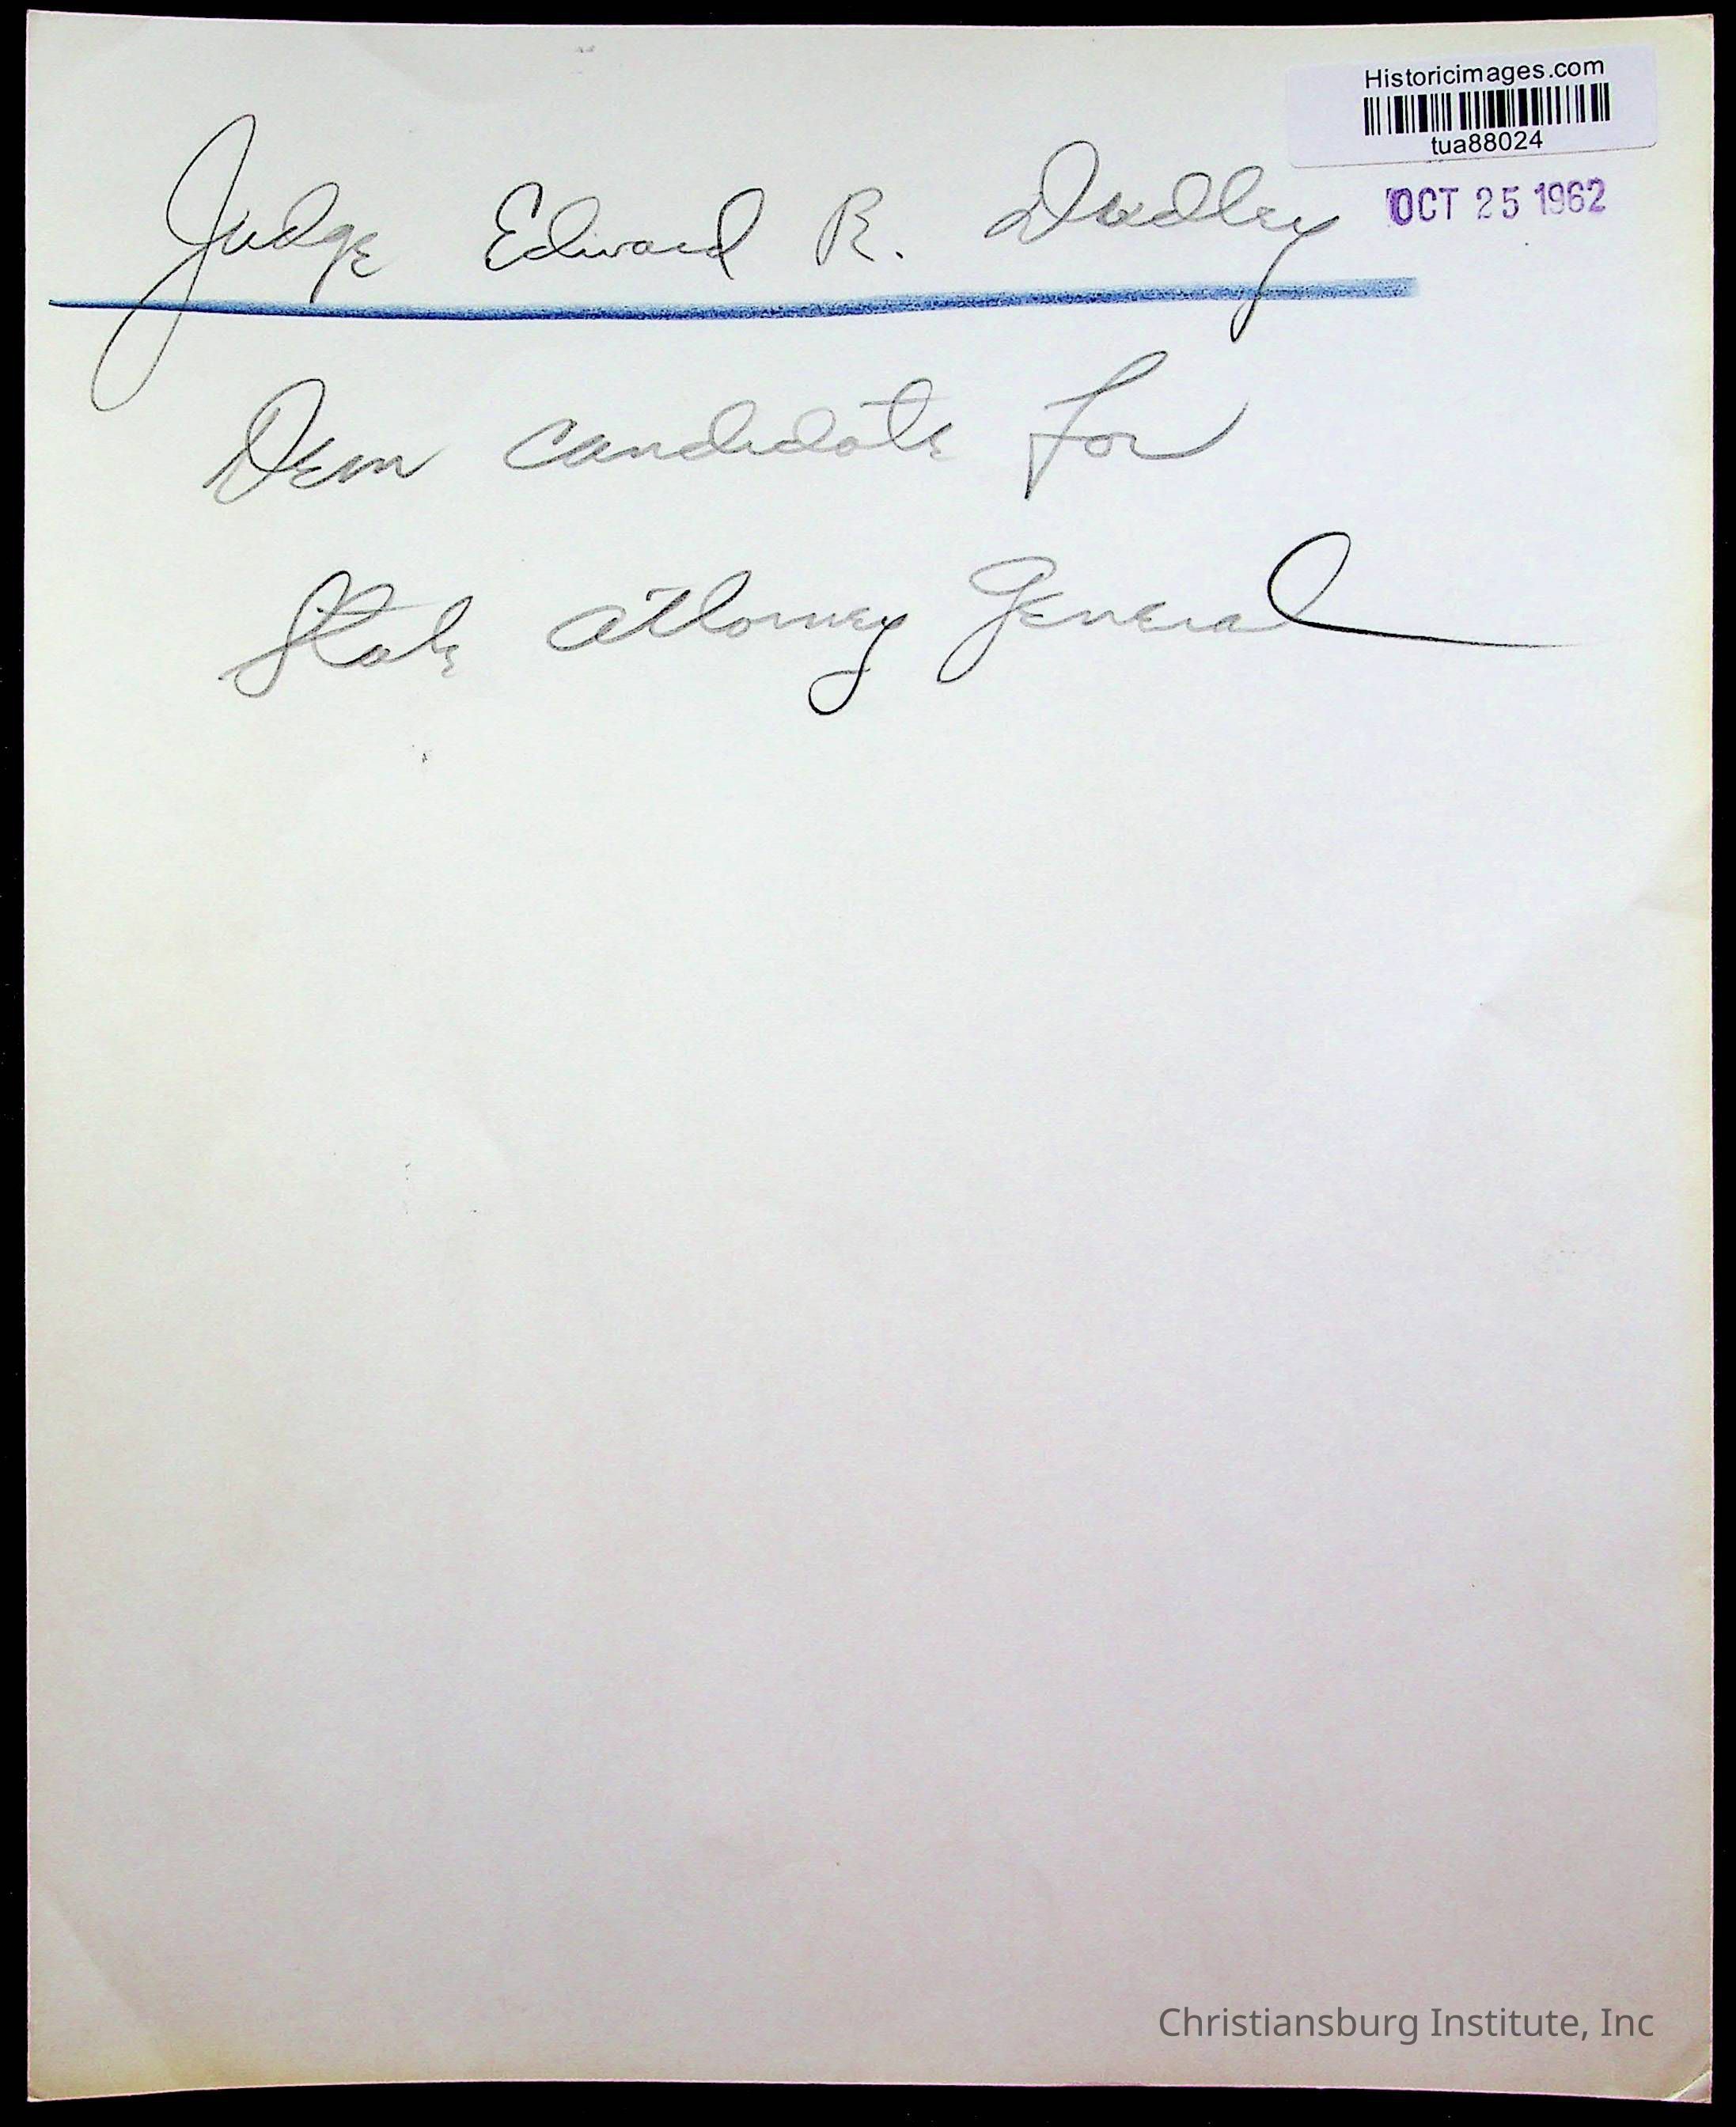 Historicimages.com
tua88024
OCT 25 1962
Judge Edward R. Dudley
Dem candidate for
State Attorney General
Christiansburg Institute, Inc